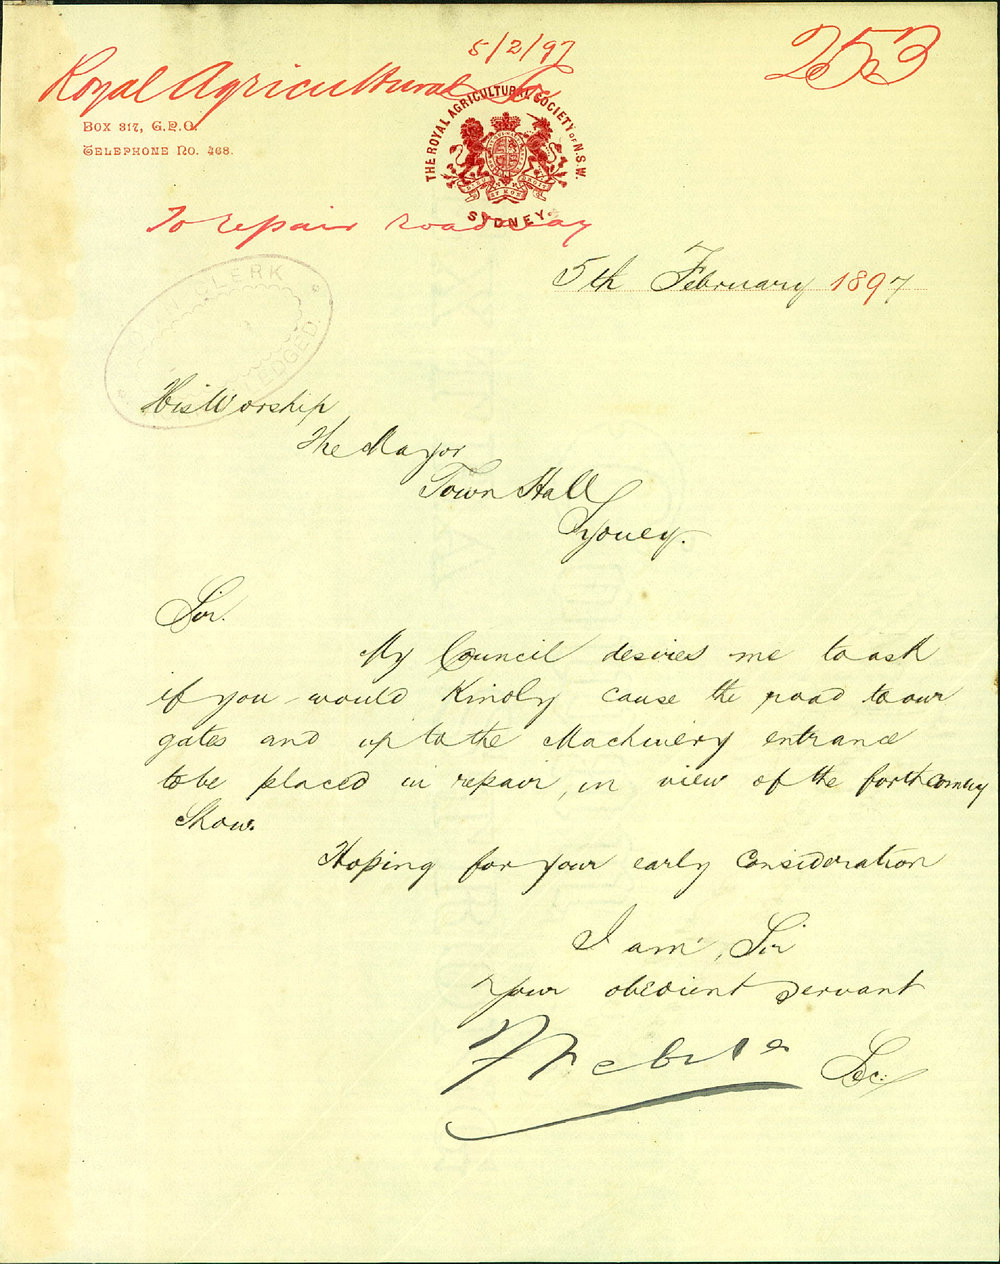 5/2/97
253
Royal Agricultural Soc
BOX 317, G.P.O.
TELEPHONE NO. 468.
THE ROYAL AGRICULTURAL SOCIETY OF N.S.W.
SYDNEY
To repair roadway
5th February 1897
TOWN CLERK
ACKNOWLEDGED.
His Worship
The Mayor
Town Hall
Sydney.
Sir.
My Council desires me to ask
if you would kindly cause the road to our
gates and up to the Machinery entrance
to be placed in repair, in view of the forthcoming
Show.
Hoping for your early consideration
I am, Sir
Your obedient servant
Sec: